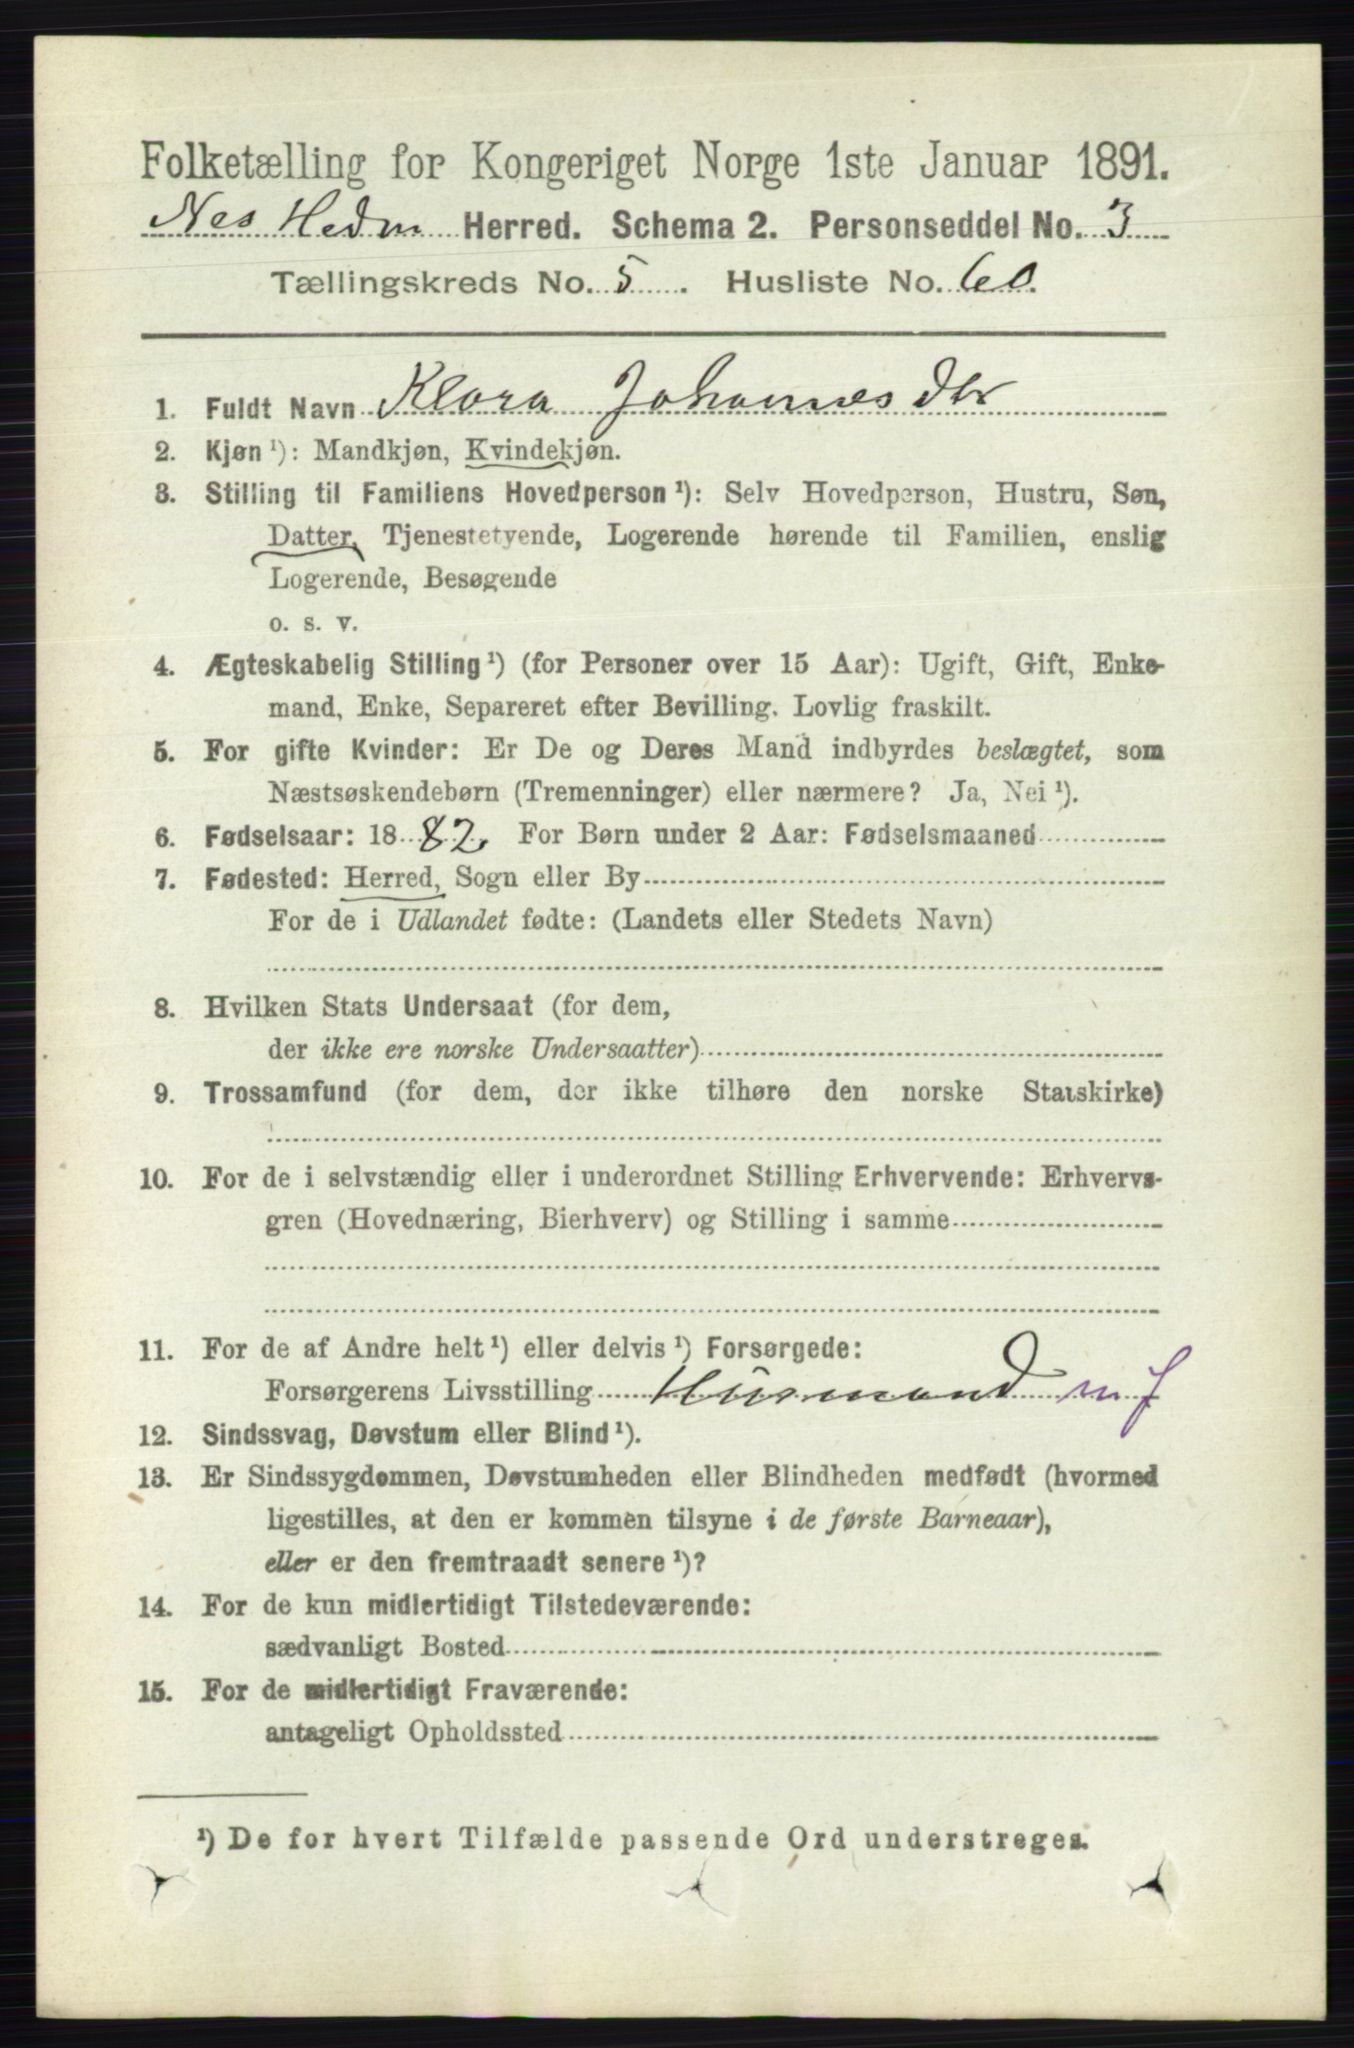 Folketælling for Kongeriget Norge 1ste Januar 1891.
Nes Hedm Herred. Schema 2. Personseddel No. 3
Tællingskreds No. 5. Husliste No. 60.
1. Fuldt Navn Klara Johannesdtr
2. Kjøn ¹): Mandkjøn, Kvindekjøn.
3. Stilling til Familiens Hovedperson ¹): Selv Hovedperson, Hustru, Søn,
Datter, Tjenestetyende, Logerende hørende til Familien, enslig
Logerende, Besøgende
o. s. v.
4. Ægteskabelig Stilling ¹) (for Personer over 15 Aar): Ugift, Gift, Enke-
mand, Enke, Separeret efter Bevilling. Lovlig fraskilt.
5. For gifte Kvinder: Er De og Deres Mand indbyrdes beslægtet, som
Næstsøskendebørn (Tremenninger) eller nærmere? Ja, Nei ¹).
6. Fødselsaar: 1882. For Børn under 2 Aar: Fødselsmaaned
7. Fødested: Herred, Sogn eller By
For de i Udlandet fødte: (Landets eller Stedets Navn)
8. Hvilken Stats Undersaat (for dem,
der ikke ere norske Undersaatter)
9. Trossamfund (for dem, der ikke tilhøre den norske Statskirke)
10. For de i selvstændig eller i underordnet Stilling Erhvervende: Erhvervs-
gren (Hovednæring, Bierhverv) og Stilling i samme
11. For de af Andre helt ¹) eller delvis ¹) Forsørgede:
Forsørgerens Livsstilling Husmand m f
12. Sindssvag, Døvstum eller Blind ¹).
13. Er Sindssygdommen, Døvstumheden eller Blindheden medfødt (hvormed
ligestilles, at den er kommen tilsyne i de første Barneaar),
eller er den fremtraadt senere ¹)?
14. For de kun midlertidigt Tilstedeværende:
sædvanligt Bosted
15. For de midlertidigt Fraværende:
antageligt Opholdssted
¹) De for hvert Tilfælde passende Ord understreges.